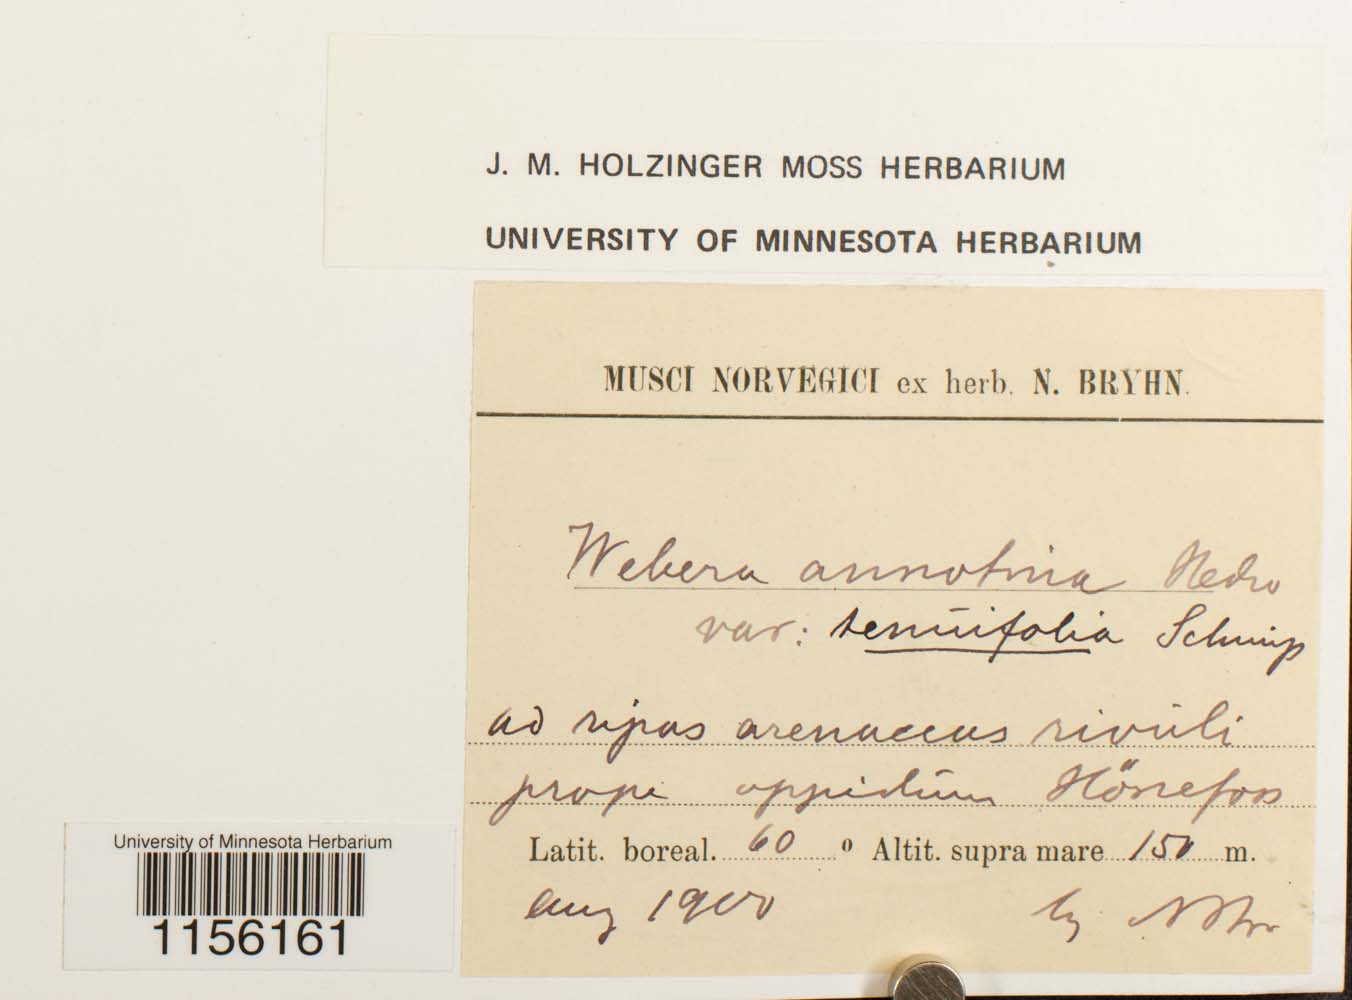 J. M. HOLZINGER MOSS HERBARIUM
UNIVERSITY OF MINNESOTA HERBARIUM
MUSCI NORVEGICI ex herb. N. BRYHN.
Webera annotina Hedw
var: tenuifolia Schimp
ad ripas arenaceas rivuli
prope oppidum Hönefoss
Latit. boreal. 60 º Altit. supra mare 150 m.
Aug 1900
University of Minnesota Herbarium
1156161